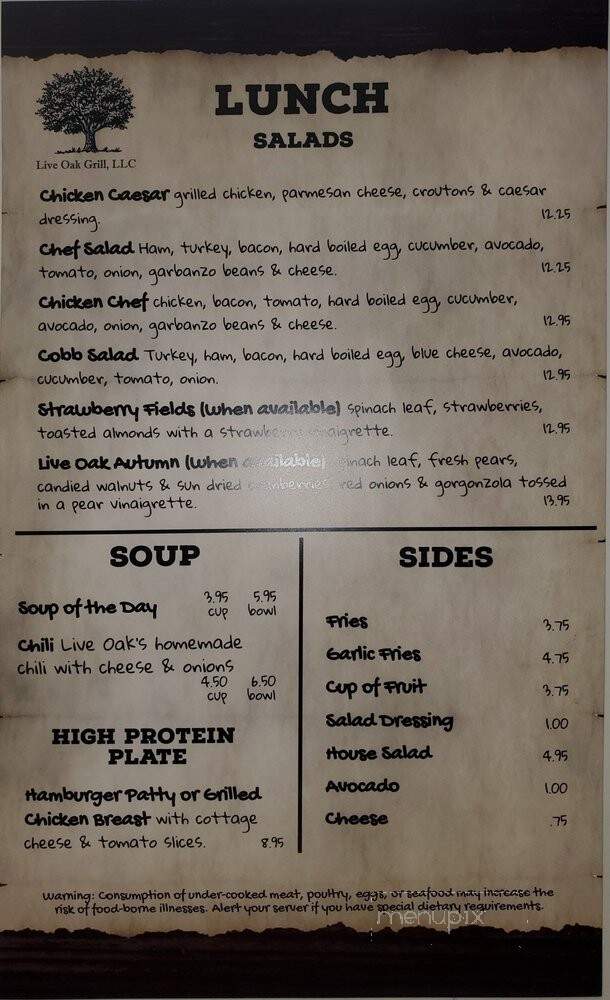 LUNCH
SALADS
Live Oak Grill, LLC
Chicken Caesar grilled chicken, parmesan cheese, croutons & caesar
dressing. 12.25
Chef Salad Ham, turkey, bacon, hard boiled egg, cucumber, avocado,
tomato, onion, garbanzo beans & cheese. 12.25
Chicken Chef chicken, bacon, tomato, hard boiled egg, cucumber,
avocado, onion, garbanzo beans & cheese. 12.95
Cobb Salad Turkey, ham, bacon, hard boiled egg, blue cheese, avocado,
cucumber, tomato, onion. 12.95
Strawberry Fields (when available) spinach leaf, strawberries,
toasted almonds with a strawberry vinaigrette. 12.95
Live Oak Autumn (when available) spinach leaf, fresh pears,
candied walnuts & sun dried cranberries red onions & gorgonzola tossed
in a pear vinaigrette. 13.95
SOUP
3.95 5.95
Soup of the Day cup bowl
Chili Live Oak's homemade
chili with cheese & onions
4.50 6.50
cup bowl
HIGH PROTEIN
PLATE
Hamburger Patty or Grilled
Chicken Breast with cottage
cheese & tomato slices. 8.95
SIDES
Fries 3.75
Garlic Fries 4.75
Cup of Fruit 3.75
Salad Dressing 1.00
House Salad 4.95
Avocado 1.00
Cheese .75
Warning: Consumption of under-cooked meat, poultry, eggs, or seafood may increase the
risk of food-borne illnesses. Alert your server if you have special dietary requirements.
menupix